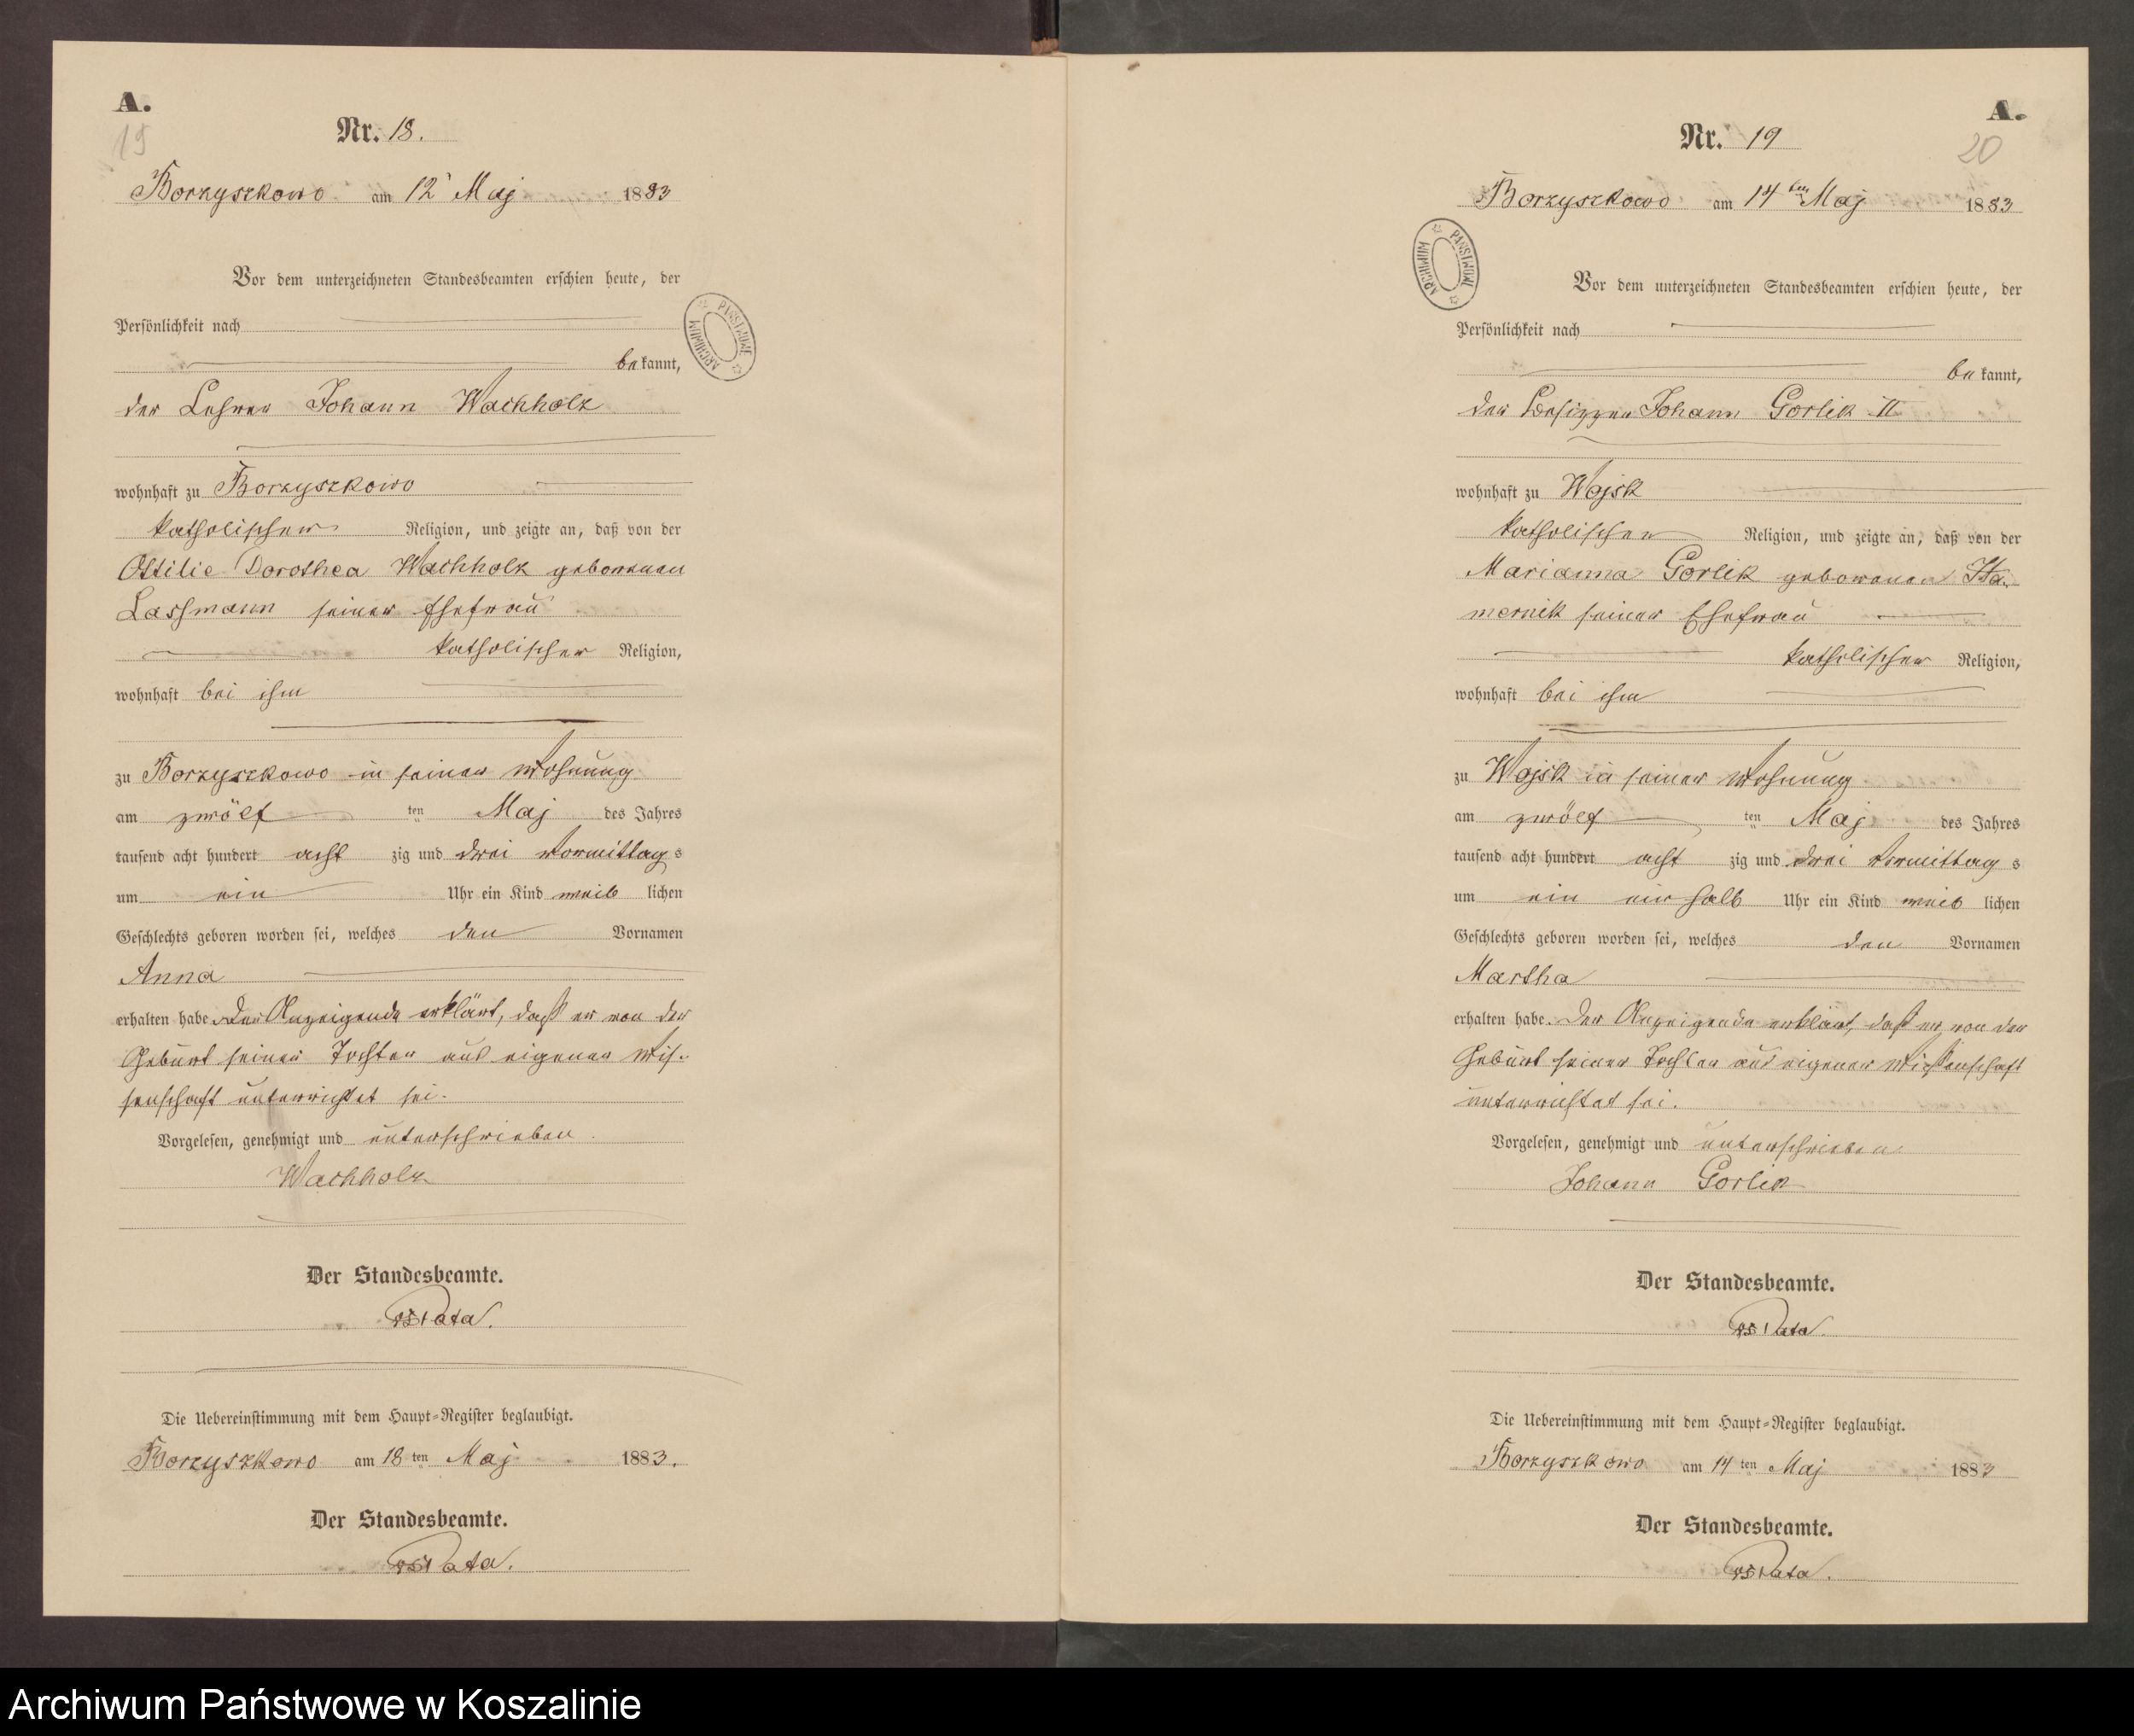 A.
19
Nr. 18.
Borzyszkowo am 12 Maj 1883
Vor dem unterzeichneten Standesbeamten erschien heute, der
Persönlichkeit nach
bekannt,
der Lehrer Johann Wachholz
wohnhaft zu Borzyszkowo
katholischer Religion, und zeigte an, daß von der
Ottilie Dorothea Wachholz geborenen
Lassmann seiner Ehefrau
katholischer Religion,
wohnhaft bei ihm
zu Borzyszkowo in seiner Wohnung
am zwölf ten Maj des Jahres
tausend acht hundert acht zig und drei Vormittag s
um ein Uhr ein Kind weib lichen
Geschlechts geboren worden sei, welches den Vornamen
Anna
erhalten habe. Der Anzeigende erklärt, daß er von der
Geburt seiner Tochter aus eigener Wis-
senschaft unterrichtet sei.
Vorgelesen, genehmigt und unterschrieben.
Wachholz
Der Standesbeamte.
Die Uebereinstimmung mit dem Haupt-Register beglaubigt.
Borzyszkowo am 18 ten Maj 1883.
Der Standesbeamte.
ARCHIWUM PAŃSTWOWE
A.
20
Nr. 19
Borzyszkowo am 14 ten Maj 1883
Vor dem unterzeichneten Standesbeamten erschien heute, der
Persönlichkeit nach
bekannt,
der Besitzer Johann Gorlik II
wohnhaft zu Wojsk
katholischer Religion, und zeigte an, daß von der
Marianna Gorlik geborenen
seiner Ehefrau
katholischer Religion,
wohnhaft bei ihm
zu Wojsk in seiner Wohnung
am zwölf ten Maj des Jahres
tausend acht hundert acht zig und drei Vormittag s
um ein ein halb Uhr ein Kind weib lichen
Geschlechts geboren worden sei, welches den Vornamen
Martha
erhalten habe. Der Anzeigende erklärt, daß er von der
Geburt seiner Tochter aus eigener Wißenschaft
unterrichtet sei.
Vorgelesen, genehmigt und unterschrieben.
Johann Gorlik
Der Standesbeamte.
Die Uebereinstimmung mit dem Haupt-Register beglaubigt.
Borzyszkowo am 14 ten Maj 1883
Der Standesbeamte.
ARCHIWUM PAŃSTWOWE
Archiwum Państwowe w Koszalinie